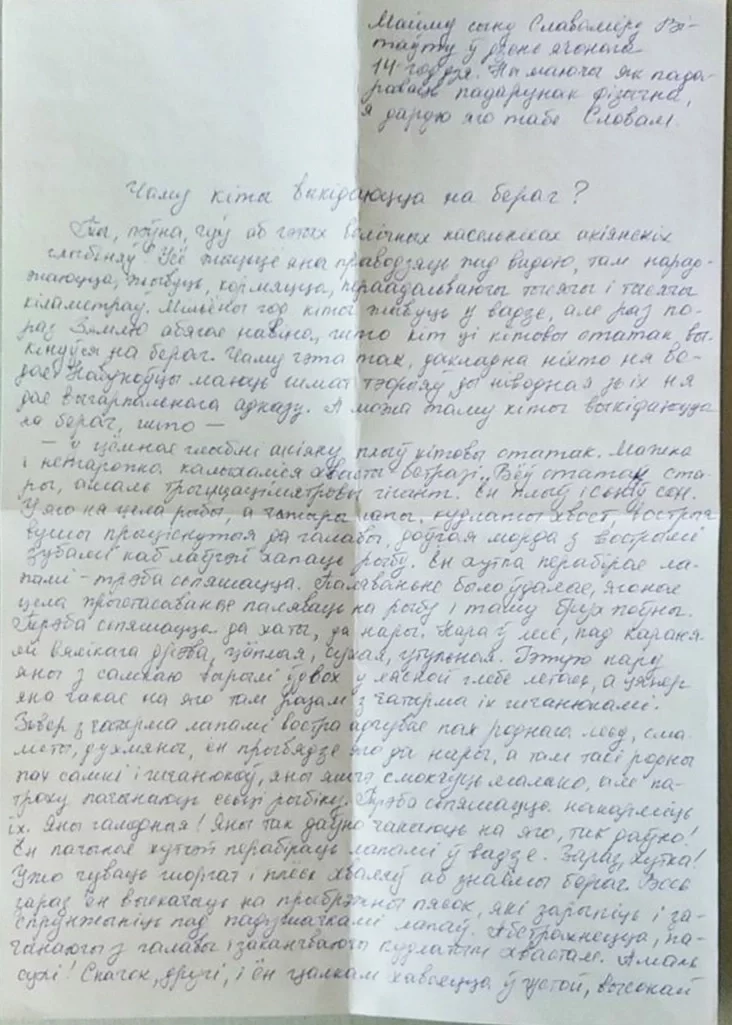 Майму сыну Славаміру Ві-
таўту ў дзень ягонага
14-годдзя. Ня маючы як пада-
раваць падарунак фізычна,
я дарую яго табе Словам.
Чаму кіты выкідаюцца на бераг?
Ты, пэўна, чуў аб гэтых велічных насельніках акіянскіх
глыбіняў. Усё жыцьцё яны праводзяць пад вадою, там нарад-
жаюцца, жывуць, кормяцца, пераадольваючы тысячы і тысячы
кіламетраў. Мільёны год кіты жывуць у вадзе, але раз по-
раз Зямлю абягае навіна, што кіт ці кітовы статак вы-
кінуўся на бераг. Чаму гэта так, дакладна ніхто ня ве-
дае. Навукоўцы маюць шмат тэорыяў ды ніводная зь іх ня
дае вычарпальнага адказу. А можа таму кіты выкідаюцца
на бераг, што —
— у цёмнае глыбіні акіяну плыў кітовы статак. Мажна
і нетаропка калыхаліся хвасты ветразі. Вёў статак ста-
ры, амаль трыццаціметровы гігант. Ён плыў і сьніў сон.
У яго ня цела рыбы, а чатыры лапы, кудлаты хвост, вострыя
вушы прыціснутыя да галавы, доўгая морда з вострымі
зубамі каб лаўчэй хапаць рыбу. Ён хутка перабірае ла-
памі – трэба сьпяшацца. Паляваньне было ўдалае, ягонае
цела прыстасаванае паляваць на рыбу і таму брух поўны.
Трэба сьпяшацца да хаты, да нары. Нара ў лесе, пад караня-
мі вялікага дрэва, цёплая, сухая, утульная. Гэтую нару
яны з самкаю вырылі ўдвох у мяккай глебе летась, а цяпер
яна чакае на яго там разам з чатырма іх шчанюкамі.
Зьвер з чатырма лапамі востра адчувае пах роднага лесу, сма-
лісты, духмяны, ён прывядзе яго да нары, а там такі родны
пах самкі і шчанюкоў, яны яшчэ смокчуць малако, але па-
троху пачынаюць есьці рыбку. Трэба сьпяшацца накарміць
іх. Яны галодныя! Яны так даўно чакаюць на яго, так даўно!
Ён пачынае хутчэй перабіраць лапамі ў вадзе. Зараз, хутка!
Ужо чуваць шоргат і плёск хваляў аб знаёмы бераг. Вось
зараз ён выскачыць на прыбрэжны пясок, які зарыпіць і за-
спружыніць пад падушачкамі лапаў. Абстрахнецца, па-
чынаючы з галавы і заканчваючы кудлатым хвастом. Амаль
сухі! Скачок, другі, і ён цалкам хаваецца ў густой, высокай